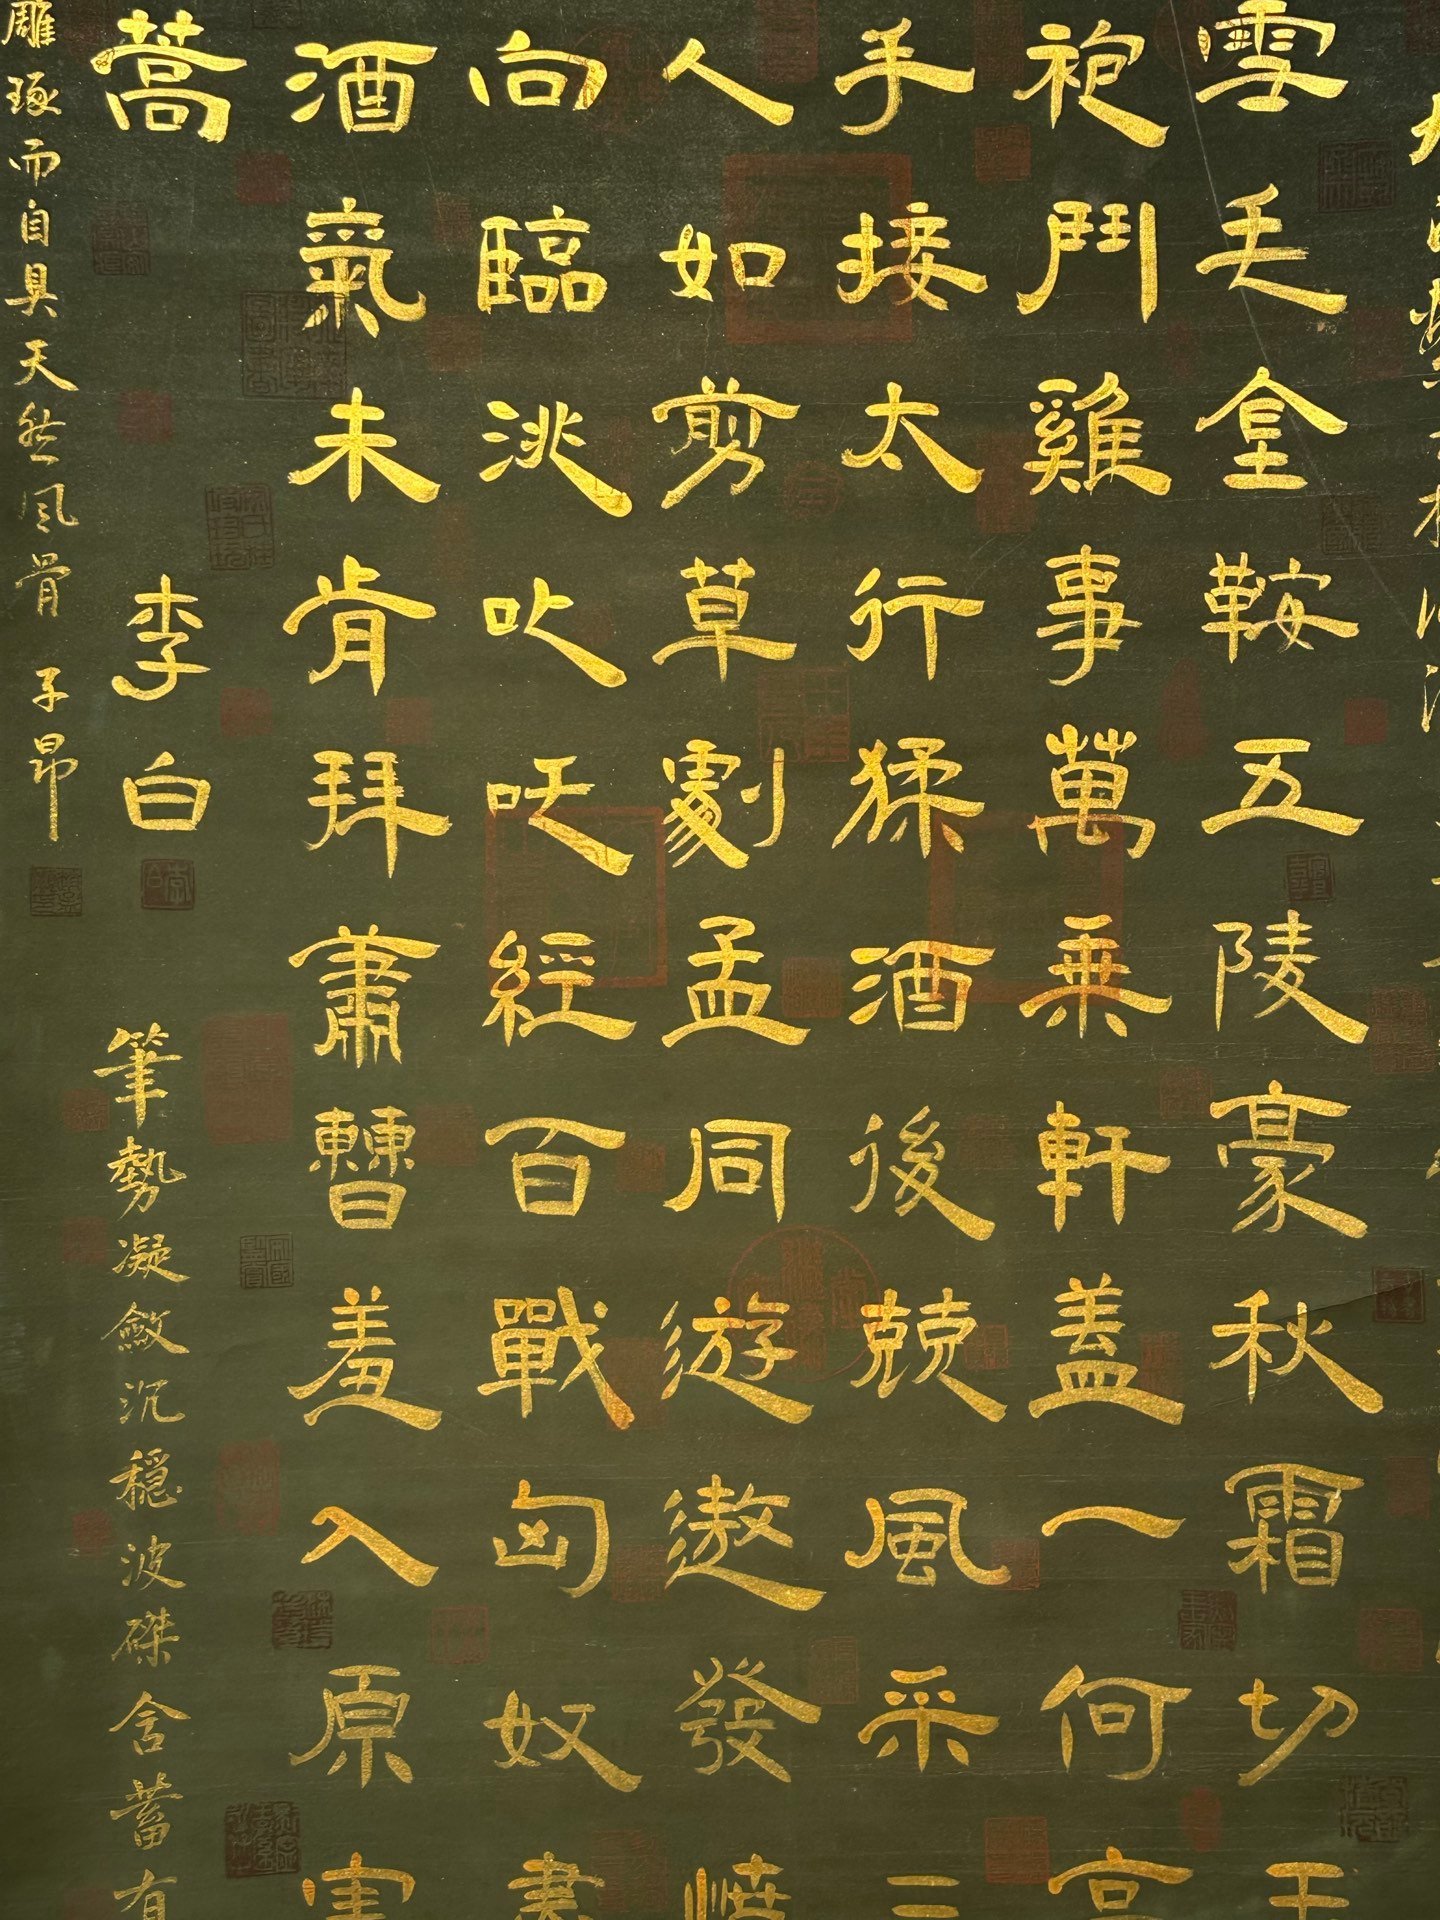 雪毛金鞍五陵豪秋霜切玉
袍鬥雞事萬乘軒蓋一何高
手接太行猱酒後競風采三
人如剪草劇孟同遊遨發憤
向臨洮叱吒經百戰匈奴盡
酒氣未肯拜蕭曹羞入原憲
蒿
李白
筆勢凝斂沉穩波磔含蓄有
雕琢而自具天然风骨 子昂